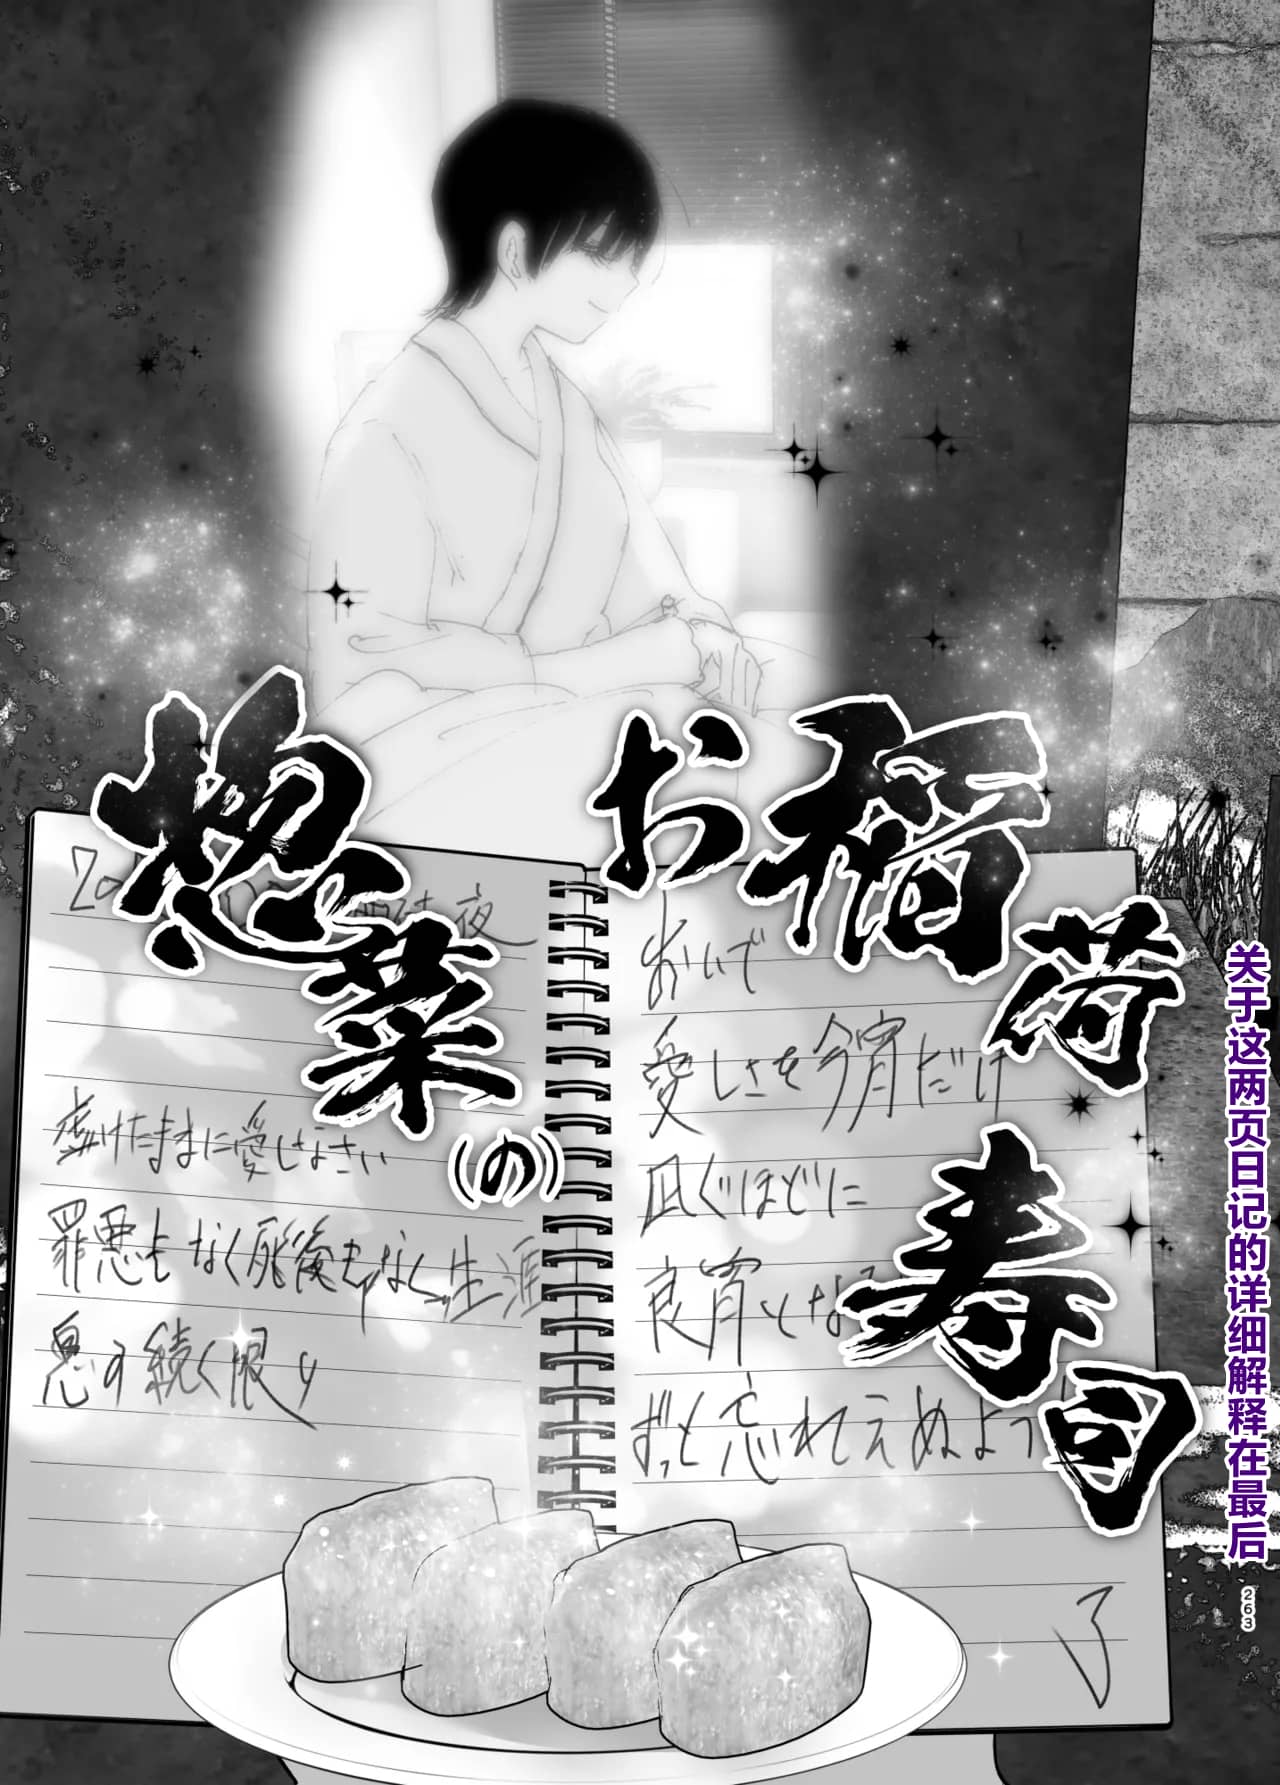 惣菜の
お稲荷
寿司
夜
虚けたままに愛しなさい
罪悪もなく死後もなく生涯
息の続く限り
おいで
愛しさを今宵だけ
凪ぐほどに
良宵とな
ずっと忘れえぬよう
了
关于这两页日记的详细解释在最后
263